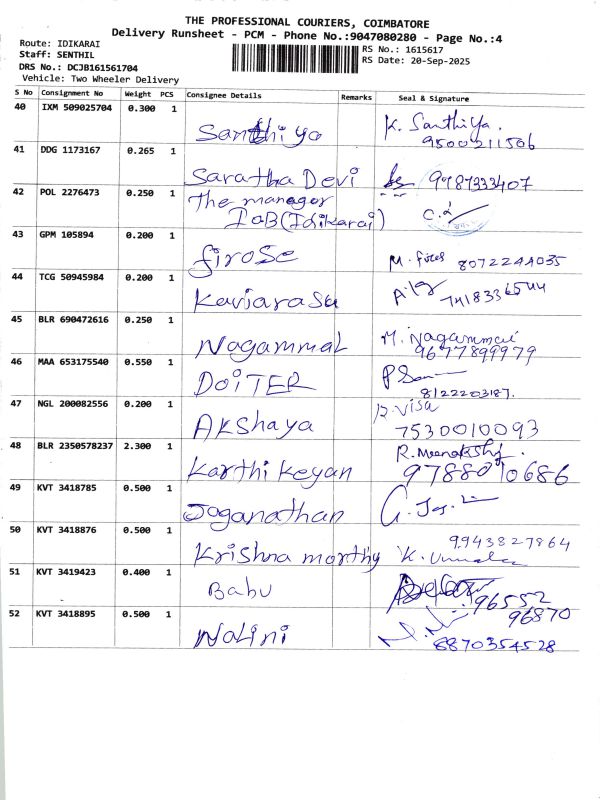 THE PROFESSIONAL COURIERS, COIMBATORE
Delivery Runsheet - PCM - Phone No.:9047080280 - Page No.:4
Route: IDIKARAI
RS No.: 1615617
Staff: SENTHIL
RS Date: 20-Sep-2025
DRS No.: DCJB161561704
Vehicle: Two Wheeler Delivery
S No Consignment No Weight PCS Consignee Details Remarks Seal & Signature
40 IXM 509025704 0.300 1 Santhiya K. Santhiya.
9500211506
41 DDG 1173167 0.265 1
Saratha Devi 9987333407
42 POL 2276473 0.250 1 The manager
IoB(Idikarai)
43 GPM 105894 0.200 1
firose 8072244035
44 TCG 50945984 0.200 1
Kaviarasu
45 BLR 690472616 0.250 1
Nagammal M. Nagammal
9677899979
46 MAA 653175540 0.550 1
DOITER
8122203187.
47 NGL 200082556 0.200 1 R. Visa
AKshaya 7530010093
48 BLR 2350578237 2.300 1 R. Meenakshi.
Karthikeyan 9788010686
49 KVT 3418785 0.500 1
Joganathan
50 KVT 3418876 0.500 1 9943827864
Krishna morthy
51 KVT 3419423 0.400 1
Babu 96552
96870
52 KVT 3418895 0.500 1
Nalini 8870354528